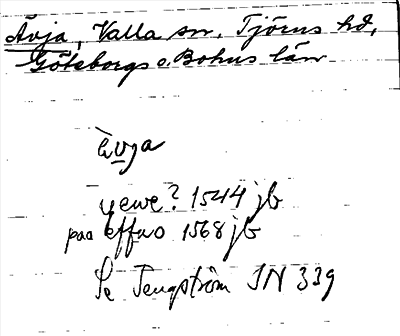 Åvja, Valla sn, Tjörns hd,
Göteborgs o. Bohus län
åvja
yewe? 1544 jb
paa effuo 1568 jb
Se Tengström IN 339